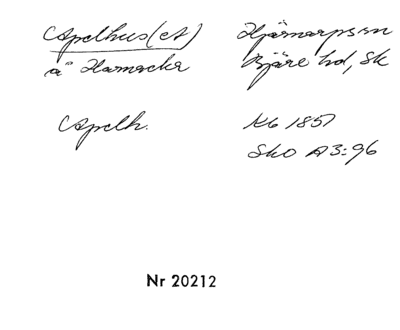 Apelhus(et) Hjärnarps sn
å Hamacker Bjäre hd, Sk
Apelh. KG 1857
SkO A3:96
Nr 20212